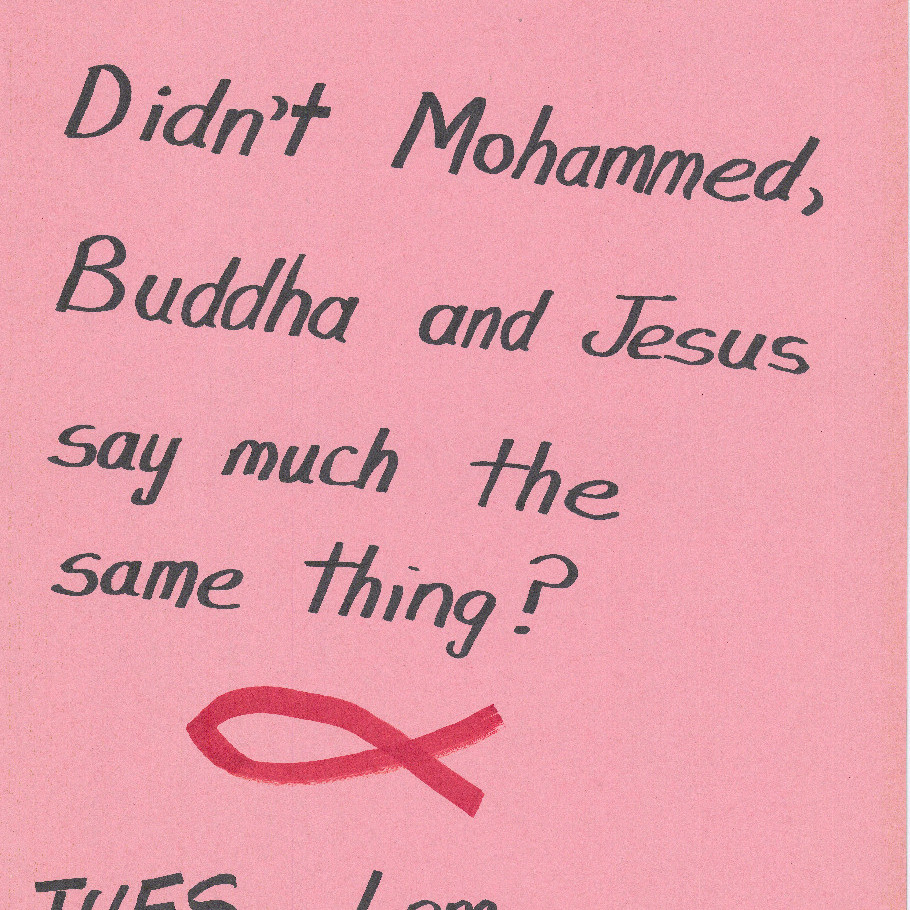 Didn't Mohammed,
Buddha and Jesus
say much the
same thing?
TUES